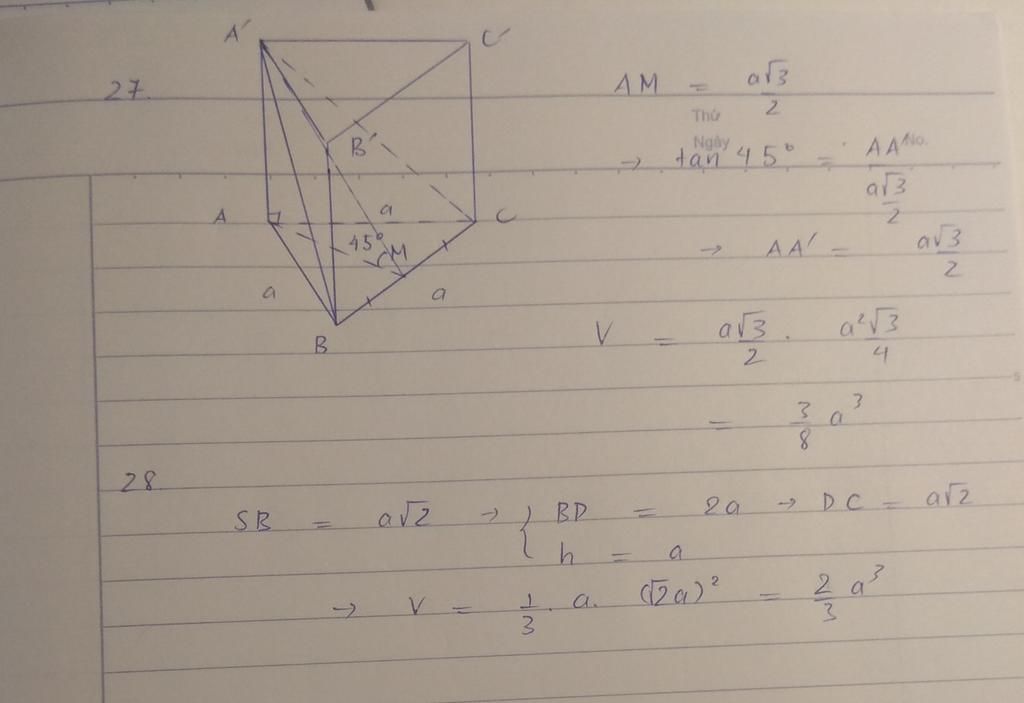 27.
A' C'
B'
A a C
45° M
a a
B
AM = a√3/2
Thứ
Ngày No.
→ tan 45° = AA'/(a√3/2)
→ AA' = a√3/2
V = a√3/2 . a²√3/4
= 3/8 a³
28.
SB = a√2 → { BD = 2a → DC = a√2
h = a
→ V = 1/3 . a. (√2a)² = 2/3 a³